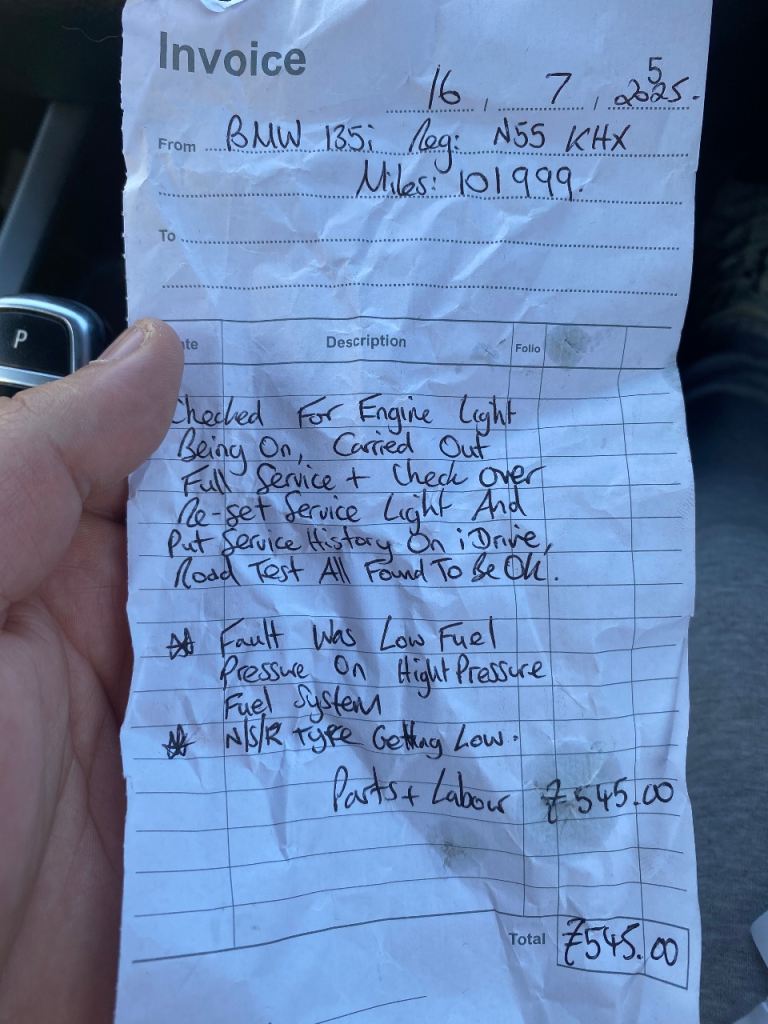 P
Invoice
16, 7, 2025.
From BMW 135i Reg: N55 KHX
Miles: 101999.
To
Description Folio
Checked For Engine Light
Being On, Carried Out
Full Service + Check over
Re-set Service Light And
Put Service History On iDrive,
Road Test All Found To Be Ok.
* Fault Was Low Fuel
Pressure On Hight Pressure
Fuel System
* N/S/R Tyre Getting Low.
Parts + Labour £545.00
Total £545.00